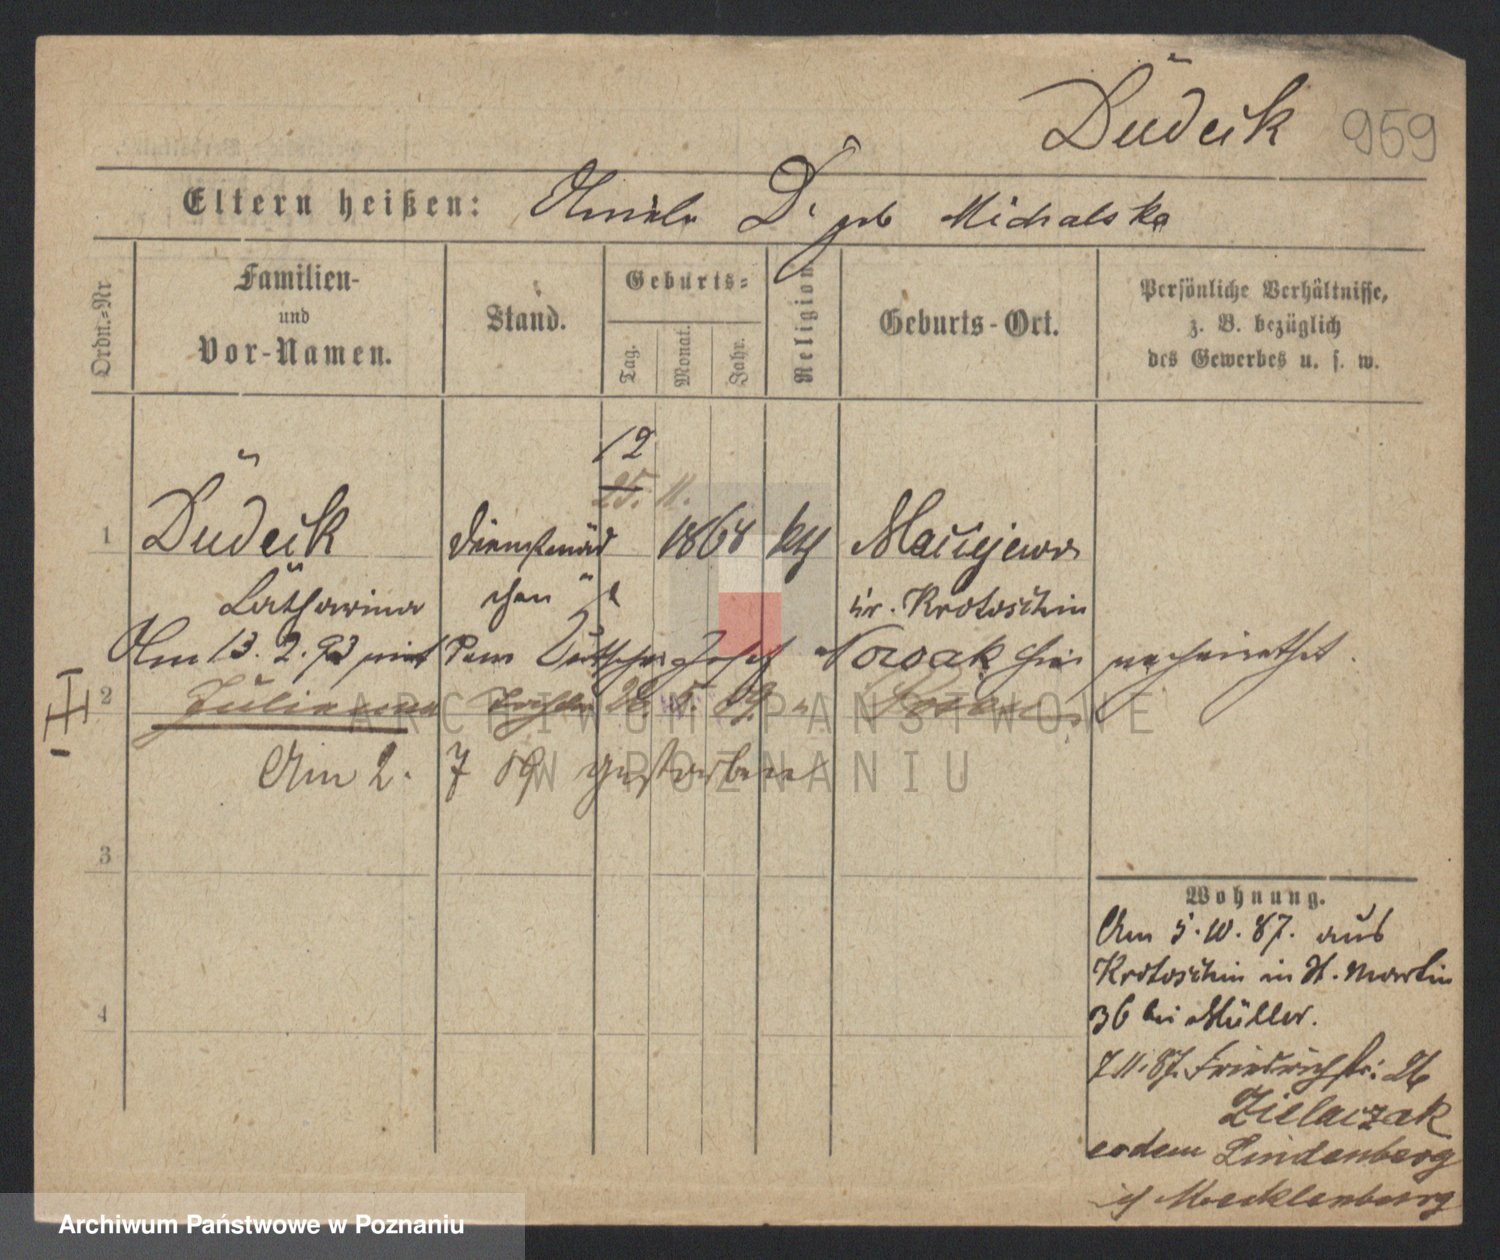 Dudeik 959
Eltern heißen: D. geb Michalska
Ordn.-Nr.
Familien-
und
Vor-Namen.
Stand.
Geburts-
Tag.
Monat.
Jahr.
Religion
Geburts-Ort.
Persönliche Verhältnisse,
z. B. bezüglich
des Gewerbes u. s. w.
12
25. 11.
1 Dudeik Dienstmäd 1868 Maciejewo
Catharina chen Kr. Krotoschin
Am 13. 2. 93 mit dem Josef Nowak hier verheirathet.
2 Julianna Tochter 22. 5. 89 Posen
Am 2. 7 89 gestorben
3
4
Wohnung.
Am 5. 10. 87. aus
Krotoschin in St. Martin
36 bei Müller.
7. 11. 87. Friedrichstr. 26
Zielaczak
eodem Lindenberg
Mecklenburg
ARCHIWUM PAŃSTWOWE
W POZNANIU
Archiwum Państwowe w Poznaniu